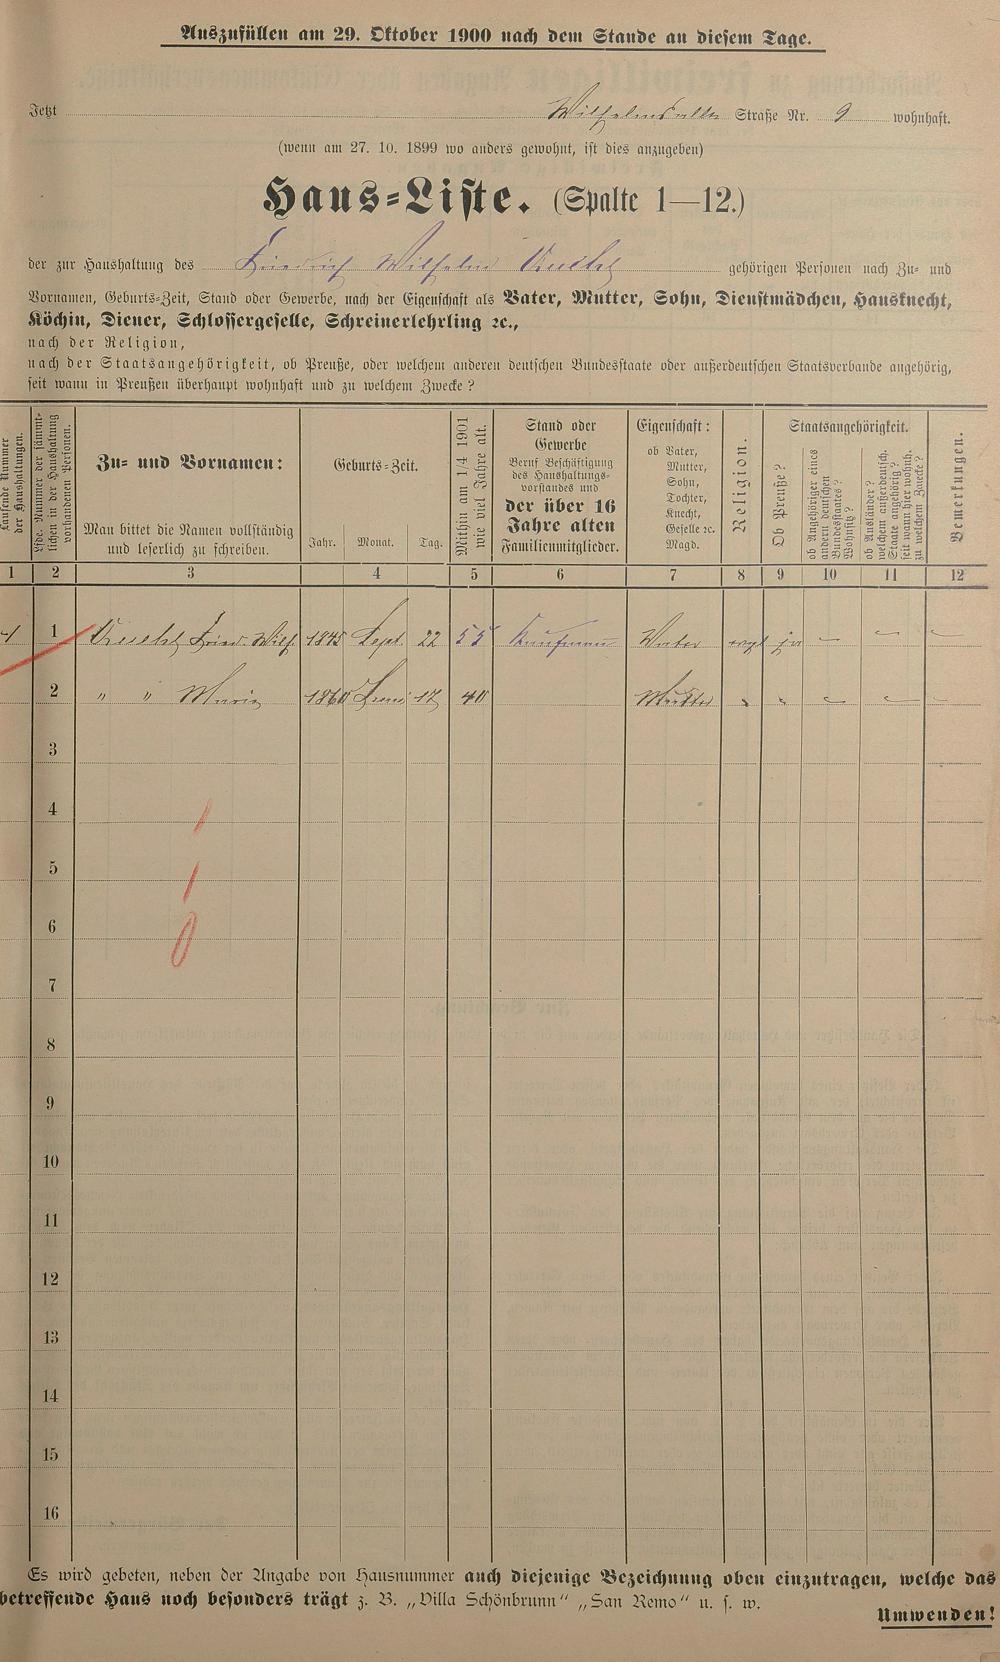 Auszufüllen am 29. Oktober 1900 nach dem Stande an diesem Tage.
Jetzt Wilhelmsallee Straße Nr. 9 wohnhaft.
(wenn am 27. 10. 1899 wo anders gewohnt, ist dies anzugeben)
Haus-Liste. (Spalte 1—12.)
der zur Haushaltung des Friedrich Wilhelm gehörigen Personen nach Zu- und
Vornamen, Geburts-Zeit, Stand oder Gewerbe, nach der Eigenschaft als Vater, Mutter, Sohn, Dienstmädchen, Hausknecht,
Köchin, Diener, Schlossergeselle, Schreinerlehrling ꝛc.,
nach der Religion,
nach der Staatsangehörigkeit, ob Preuße, oder welchem anderen deutschen Bundesstaate oder außerdeutschen Staatsverbande angehörig,
seit wann in Preußen überhaupt wohnhaft und zu welchem Zwecke?
Laufende Nummer
der Haushaltungen.
Lfde. Nummer der sämmt-
lichen in der Haushaltung
vorhandenen Personen.
Zu- und Vornamen:
Man bittet die Namen vollständig
und leserlich zu schreiben.
Geburts-Zeit.
Jahr. Monat. Tag.
Mithin am 1/4 1901
wie viel Jahre alt.
Stand oder
Gewerbe
Beruf Beschäftigung
des Haushaltungs-
vorstandes und
der über 16
Jahre alten
Familienmitglieder.
Eigenschaft:
ob Vater,
Mutter,
Sohn,
Tochter,
Knecht,
Geselle ꝛc.
Magd.
Religion.
Staatsangehörigkeit.
Ob Preuße?
ob Angehöriger eines
andern deutschen
Bundesstaates?
Wohnsitz?
ob Ausländer?
welchem außerdeutsch.
Staate angehörig?
seit wann hier wohnh.
zu welchem Zwecke?
Bemerkungen.
1 2 3 4 5 6 7 8 9 10 11 12
1 1 Fried. Wilh. 1845 Sept. 22 55 Kaufmann Vater evgl ja — — —
2 " " Maria 1860 Juni 17 40 Mutter " " — — —
3
4
5
6
7
8
9
10
11
12
13
14
15
16
Es wird gebeten, neben der Angabe von Hausnummer auch diejenige Bezeichnung oben einzutragen, welche das
betreffende Haus noch besonders trägt z. B. „Villa Schönbrunn“ „San Remo“ u. s. w.
Umwenden!